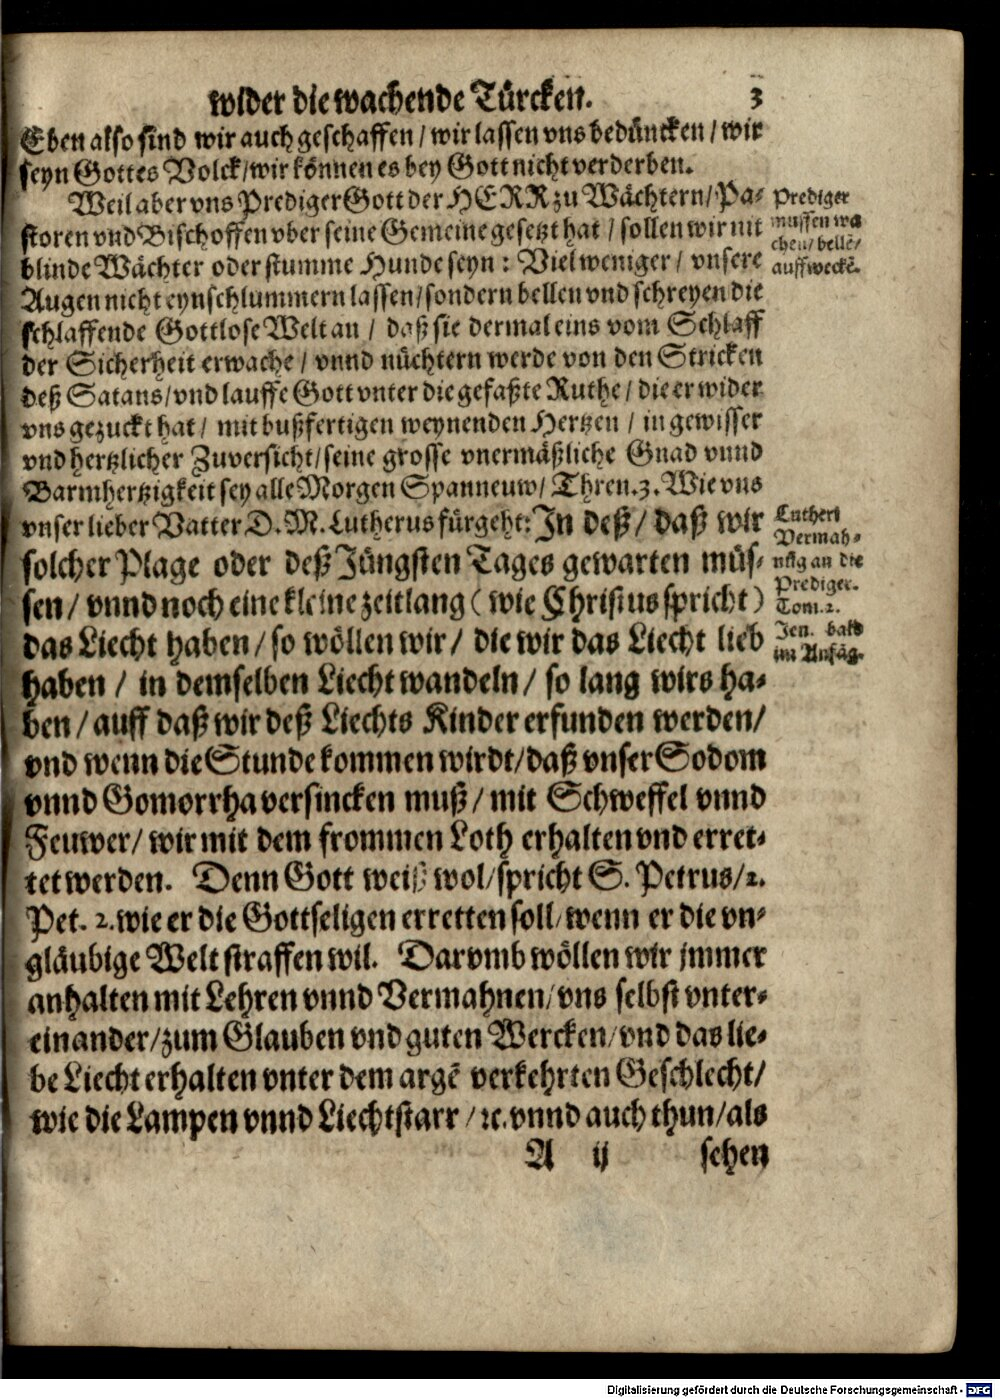 wider die wachende Türcken. 3
Eben also sind wir auch geschaffen / wir lassen vns bedüncken / wir
seyn Gottes Volck / wir können es bey Gott nicht verderben.
Weil aber vns Prediger Gott der HERR zu Wächtern / Pa-
storen vnd Bischoffen vber seine Gemeine gesetzt hat / sollen wir nit
blinde Wächter oder stumme Hunde seyn : Viel weniger / vnsere
Augen nicht eynschlummern lassen / sondern bellen vnd schreyen die
schlaffende Gottlose Welt an / daß sie dermal eins vom Schlaff
der Sicherheit erwache / vnnd nüchtern werde von den Stricken
deß Satans / vnd lauffe Gott vnter die gefaßte Ruthe / die er wider
vns gezuckt hat / mit bußfertigen weynenden Hertzen / in gewisser
vnd hertzlicher Zuversicht / seine grosse vnermäßliche Gnad vnnd
Barmhertzigkeit sey alle Morgen Spanneuw / Thren. 3. Wie vns
vnser lieber Vatter D. M. Lutherus fürgeht: In deß / daß wir
solcher Plage oder deß Jüngsten Tages gewarten müs-
sen / vnnd noch eine kleine zeitlang ( wie Christus spricht )
das Liecht haben / so wöllen wir / die wir das Liecht lieb
haben / in demselben Liecht wandeln / so lang wirs ha-
ben / auff daß wir deß Liechts Kinder erfunden werden /
vnd wenn die Stunde kommen wirdt / daß vnser Sodom
vnnd Gomorrha versincken muß / mit Schweffel vnnd
Feuwer / wir mit dem frommen Loth erhalten vnd erret-
tet werden. Denn Gott weiß wol / spricht S. Petrus / 2.
Pet. 2. wie er die Gottseligen erretten soll / wenn er die vn-
gläubige Welt straffen wil. Darvmb wöllen wir jmmer
anhalten mit Lehren vnnd Vermahnen / vns selbst vnter-
einander / zum Glauben vnd guten Wercken / vnd das lie-
be Liecht erhalten vnter dem argẽ verkehrten Geschlecht /
wie die Lampen vnnd Liechtstarr / ꝛc. vnnd auch thun / als
A ij sehen
Prediger
müssen wa
chen / bellẽ /
auffweckẽ.
Lutheri
Vermah-
nũg an die
Prediger.
Tom. 2.
Jen. bald
im Anfãg.
Digitalisierung gefördert durch die Deutsche Forschungsgemeinschaft - DFG